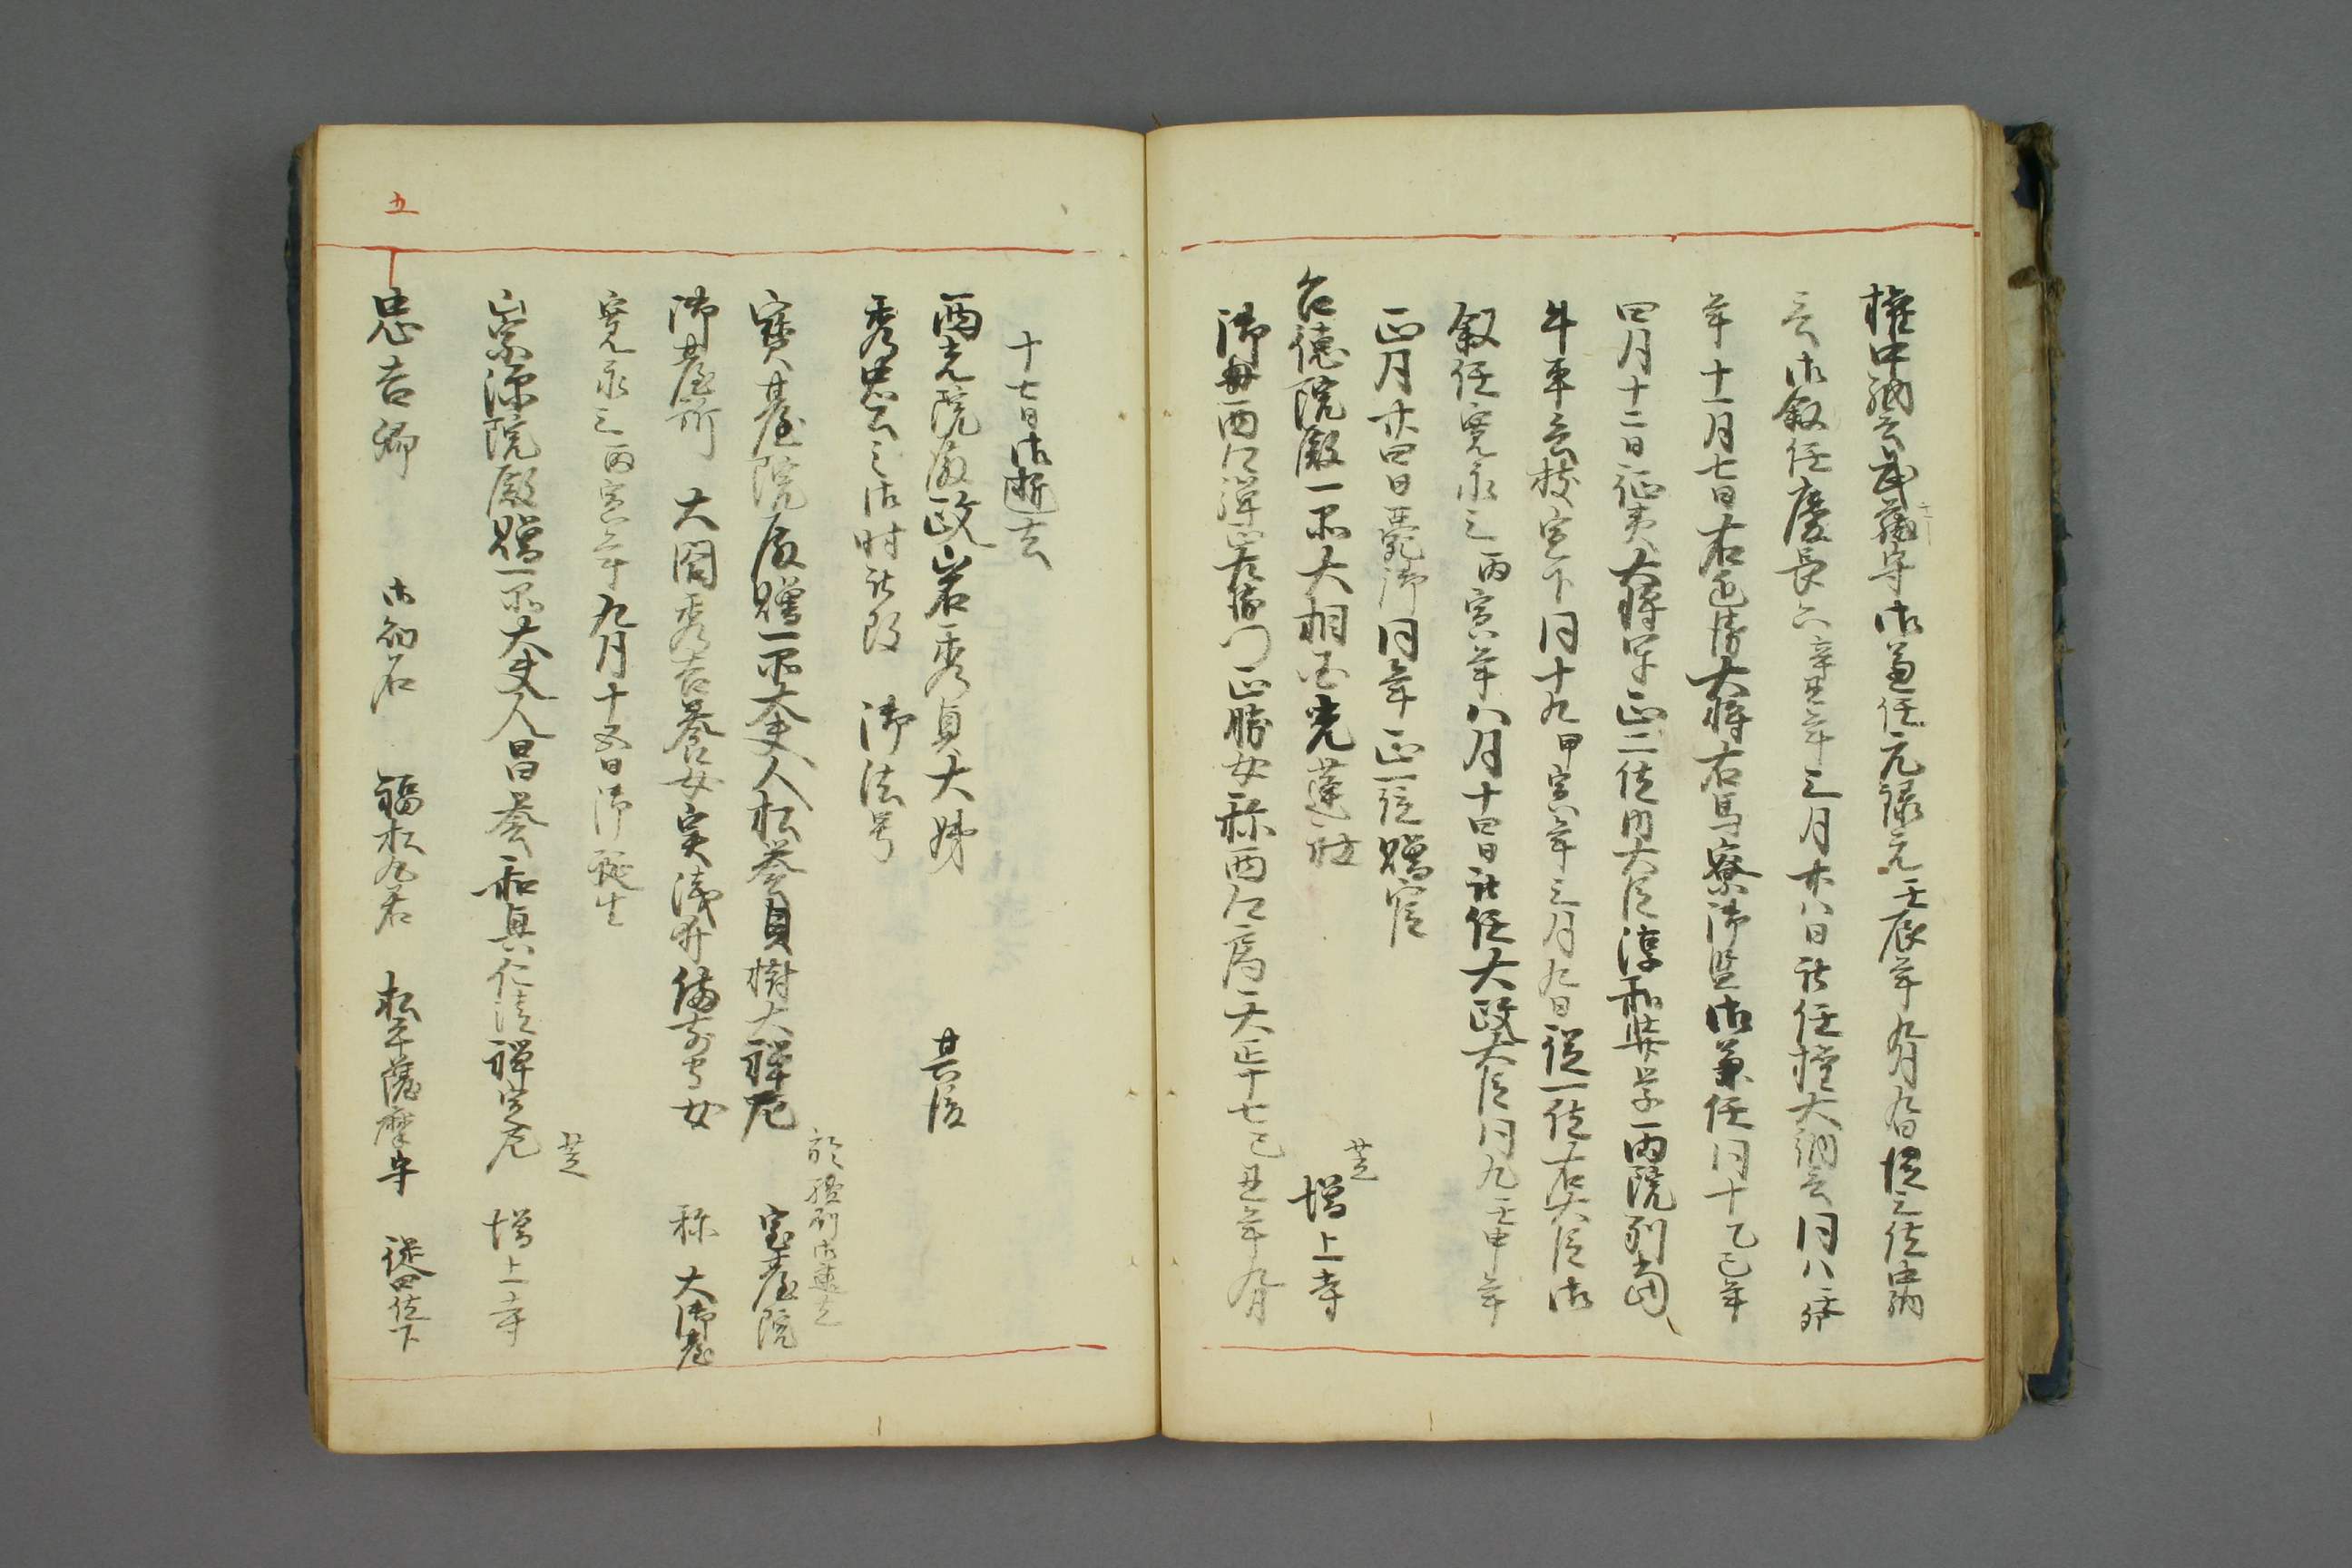 権中納言武蔵守御兼任元禄元壬辰年九月九日従三位中納
言御叙任慶長六辛丑年三月廿八日被任権大納言同八癸卯
年十一月七日右近衛大将右馬寮御監御兼任同十乙巳年
四月十二日征夷大将軍正二位内大臣淳和奨学両院別当
牛車兵杖宣下同十九甲寅年三月九日従一位右大臣御
叙任寛永三丙寅年八月十四日被任大政大臣同九壬申年
正月廿四日薨御同年正一位贈官
台徳院殿一品大相国光蓮社 芝増上寺
御母西江弾正左衛門正勝女称西江局天正十七己丑年五月
十七日御逝去
西光院殿政岩秀貞大姉 其後
秀忠公之御時被改 御法号
宝台院殿贈一品大夫人松誉貞樹大禅尼 宝台院
御台所 大閤秀吉養女実浅井備前守女 称大御台
寛永三丙寅年九月十五日御誕生
崇源院殿贈一品大夫人昌誉和興仁清禅定尼 芝増上寺
五
忠吉卿 御幼名 福松丸君 松平薩摩守 従四位下